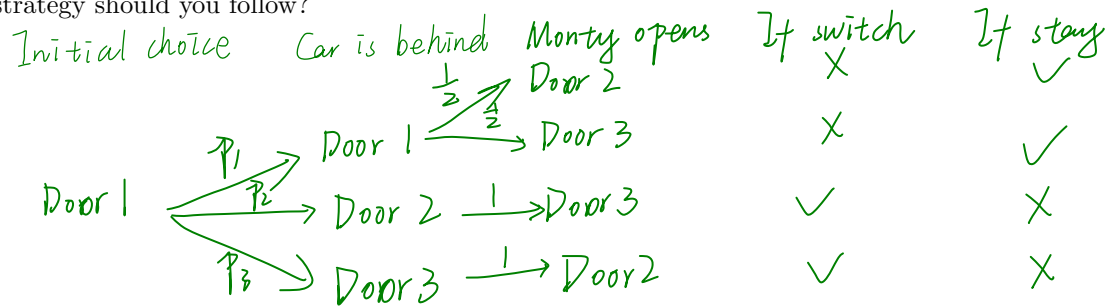 strategy should you follow?
Initial choice Car is behind Monty opens If switch If stay
1/2 Door 2 X ✓
p1 Door 1 1/2 Door 3 X ✓
Door 1 p2 Door 2 1 Door 3 ✓ X
p3 Door 3 1 Door 2 ✓ X